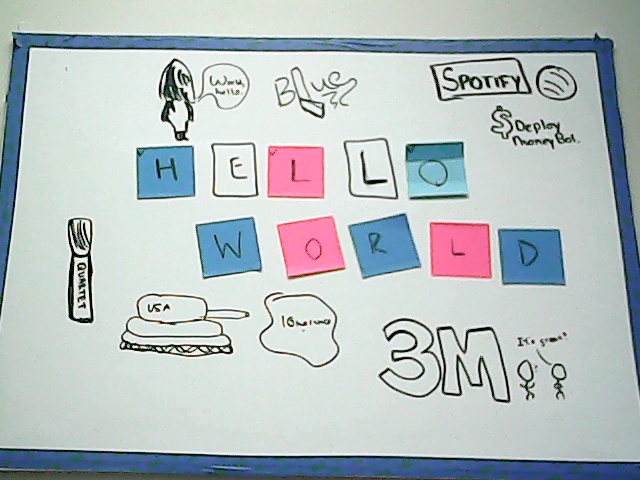 World,
hello.
Blue
SPOTIFY
$ Deploy
money Bot.
HELLO
WORLD
QUARTET
USA
3M
It's great